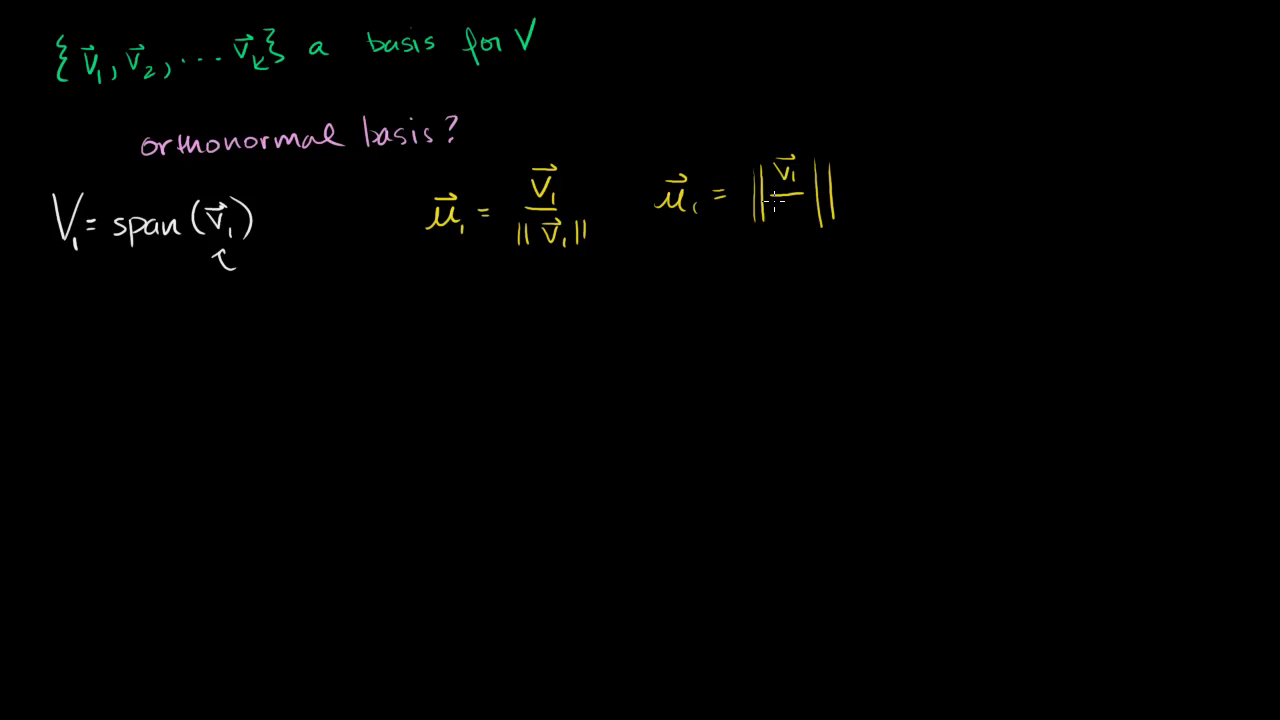 {v⃗₁, v⃗₂, ... v⃗ₖ} a basis for V
orthonormal basis?
V₁ = span(v⃗₁)
u⃗₁ = v⃗₁ / ||v⃗₁||
u⃗₁ = || v⃗₁ / ||